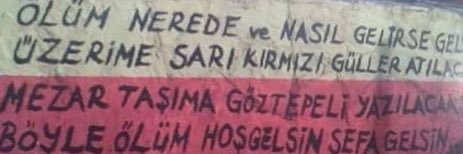 ÖLÜM NEREDE ve NASIL GELİRSE GELS
ÜZERİME SARI KIRMIZI GÜLLER ATILAC
MEZAR TAŞIMA GÖZTEPELİ YAZILACAK
BÖYLE ÖLÜM HOŞGELSİN SEFA GELSİN